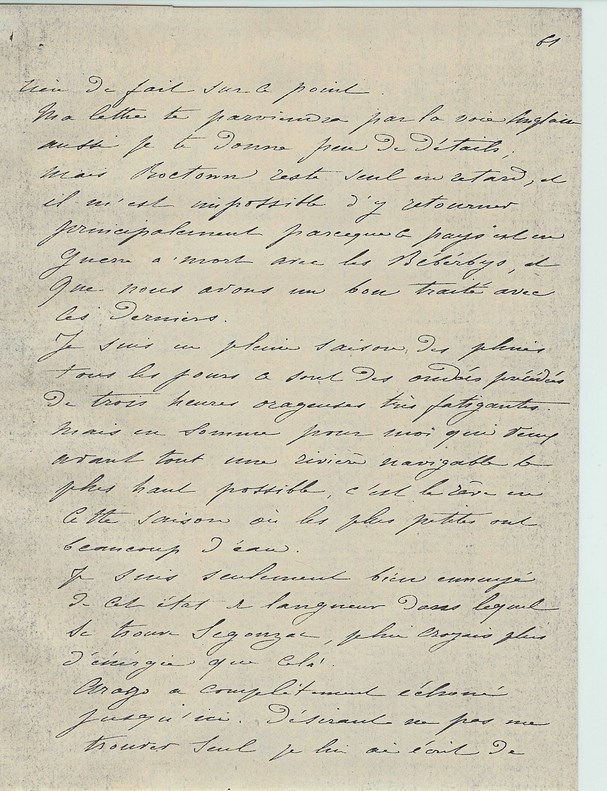 61
rien de fait sur ce point.
Ma lettre te parviendra par la voie Anglaise
aussi je te donne peu de détails,
mais Roctown reste seul en retard, et
il m'est impossible d'y retourner
principalement parceque le pays est en
Guerre à mort avec les Bébérbys, et
que nous avons un bon traité avec
ces derniers.
Je suis en pleine saison des pluies
tous les jours ce sont des ondées précédées
de trois heures orageuses très fatigantes.
Mais en somme pour moi qui veux
avant tout une rivière navigable le
plus haut possible, c'est le rêve en
cette saison où les plus petites ont
beaucoup d'eau.
Je suis seulement bien ennuyé
de cet état de langueur dans lequel
se trouve Segonzac, je lui croyais plus
d'énergie que cela.
Arago a complètement échoué
jusqu'ici. Désirant ne pas me
trouver seul je lui ai écrit de